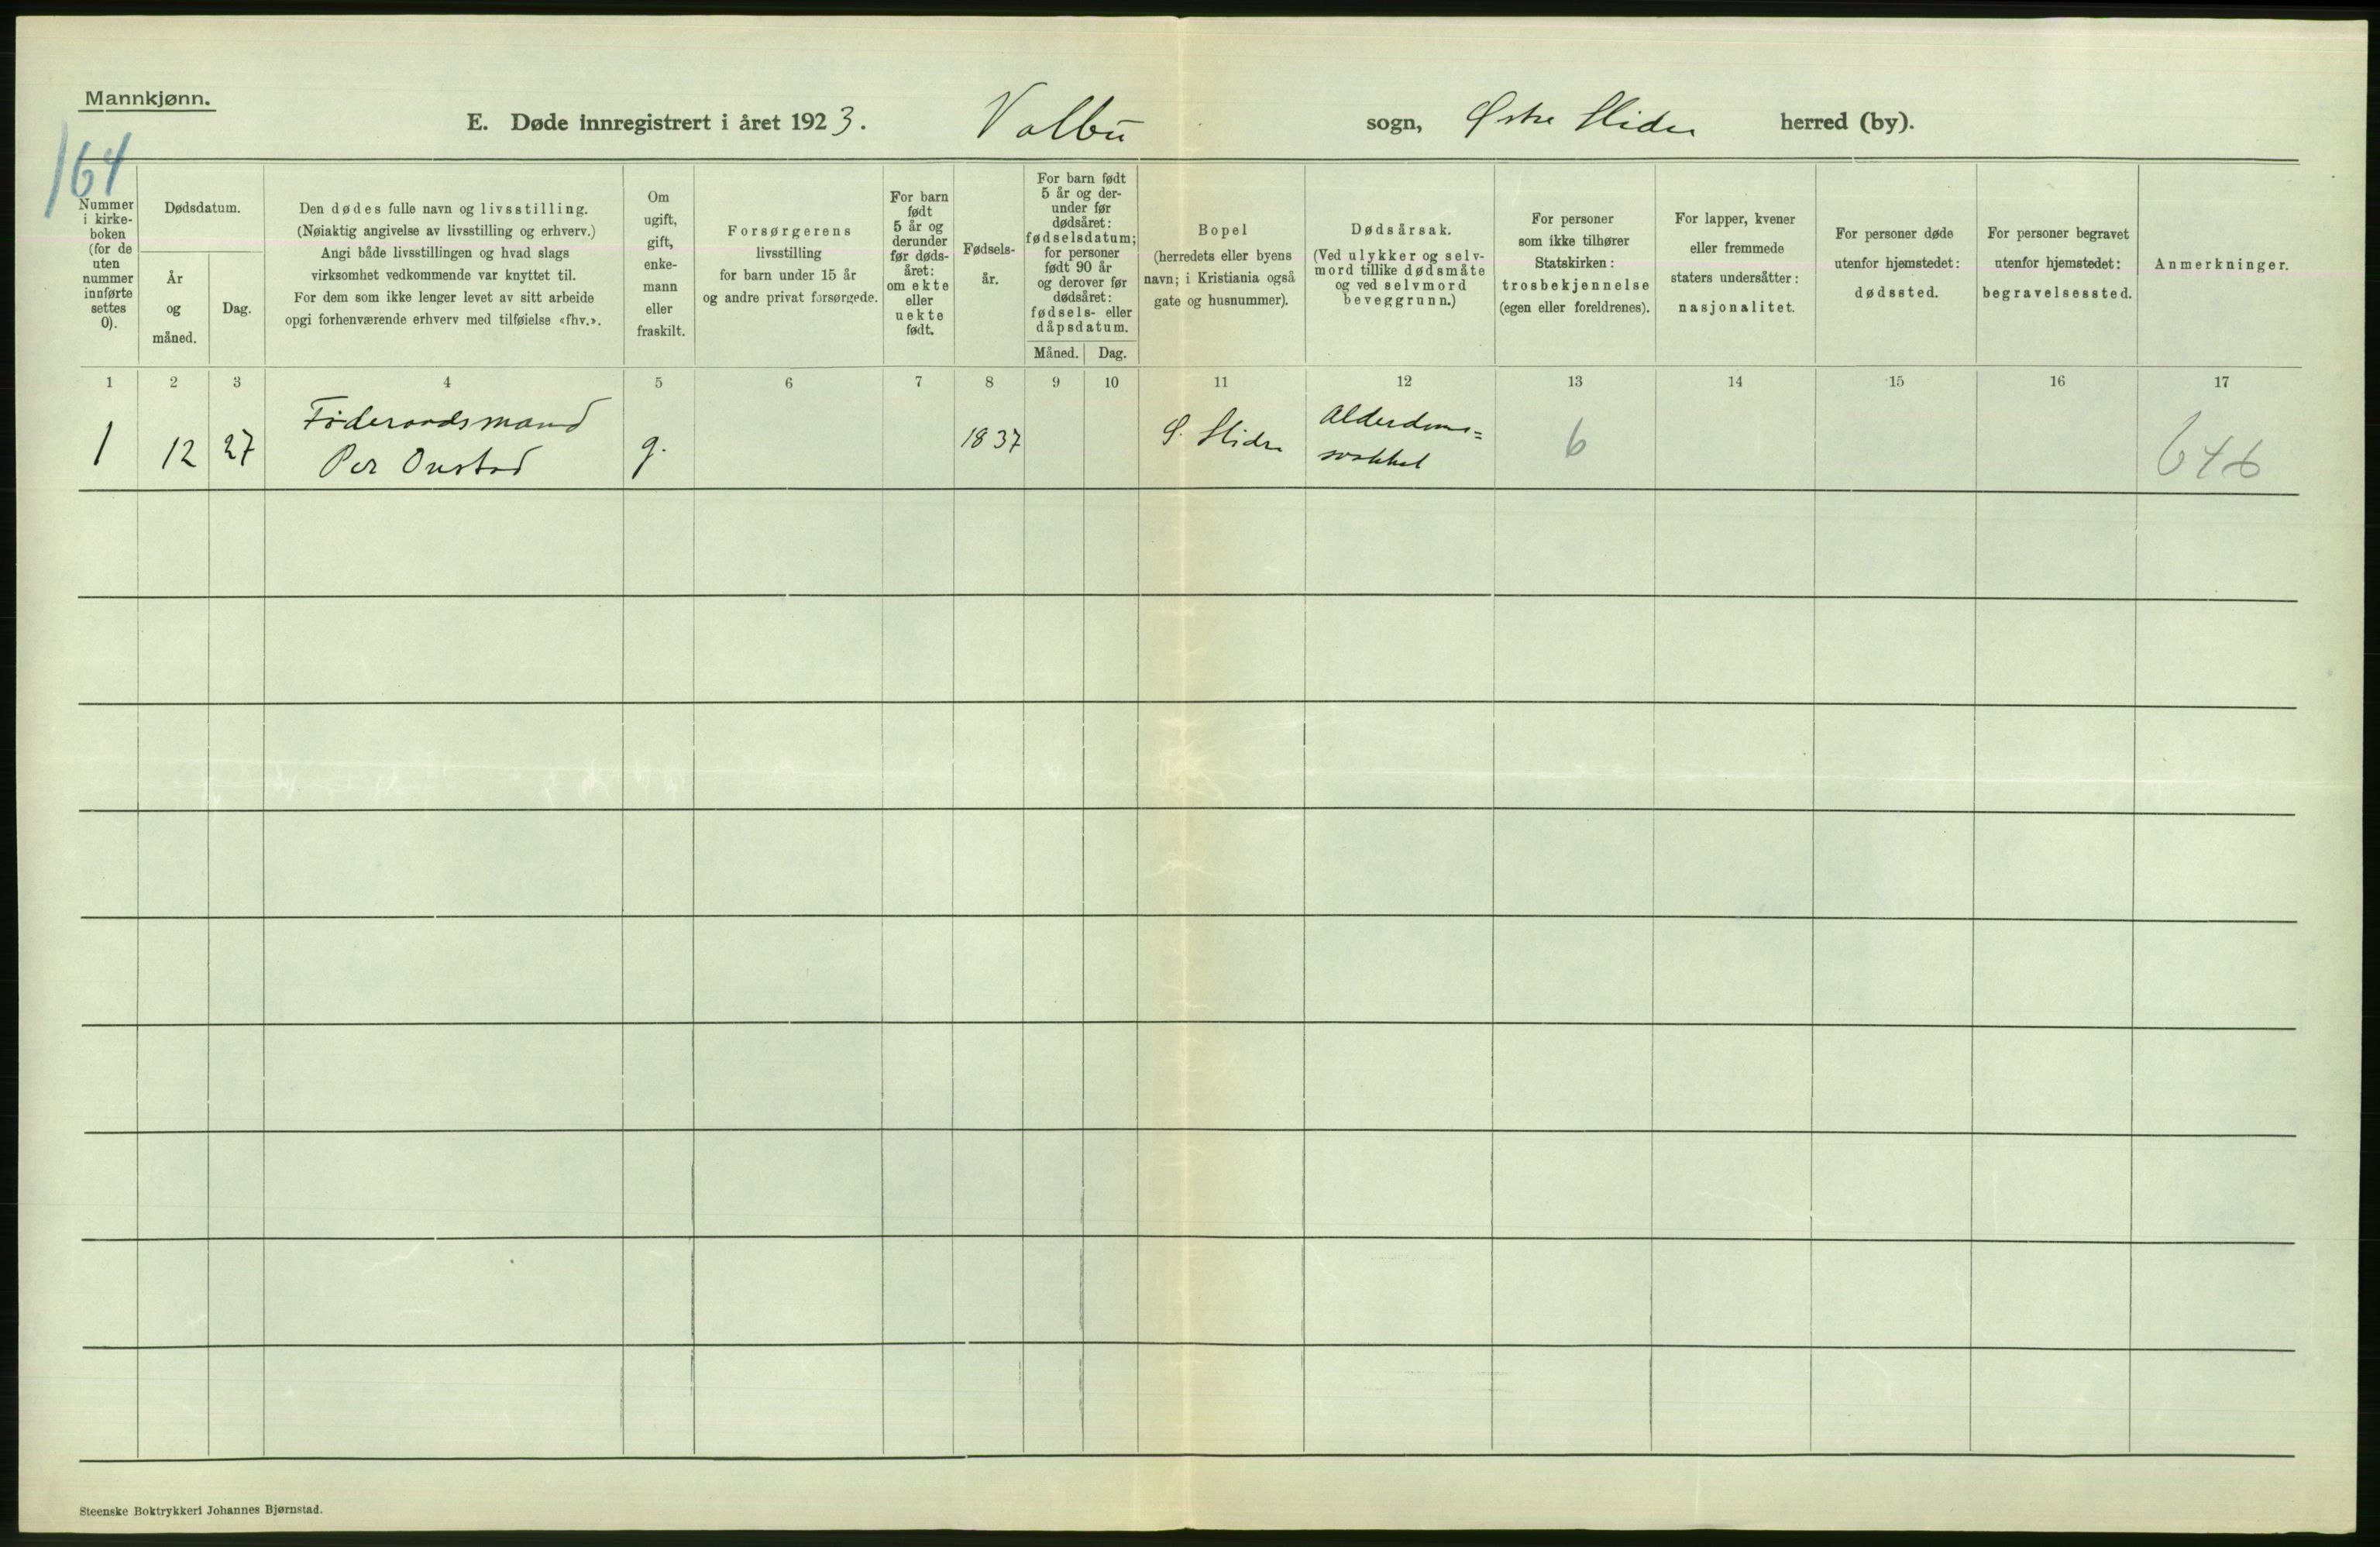 Mannkjønn.
E. Døde innregistrert i året 1923. Volbu sogn, Østre Slidre herred (by).
164
Nummer
i kirke-
boken
(for de
uten
nummer
innførte
settes
0).
Dødsdatum.
År
og
måned.
Dag.
Den dødes fulle navn og livsstilling.
(Nøiaktig angivelse av livsstilling og erhverv.)
Angi både livsstillingen og hvad slags
virksomhet vedkommende var knyttet til.
For dem som ikke lenger levet av sitt arbeide
opgi forhenværende erhverv med tilføielse «fhv.».
Om
ugift,
gift,
enke-
mann
eller
fraskilt.
Forsørgerens
livsstilling
for barn under 15 år
og andre privat forsørgede.
For barn
født
5 år og
derunder
før døds-
året:
om ekte
eller
uekte
født.
Fødsels-
år.
For barn født
5 år og der-
under før
dødsåret:
fødselsdatum;
for personer
født 90 år
og derover før
dødsåret:
fødsels- eller
dåpsdatum.
Måned. Dag.
Bopel
(herredets eller byens
navn; i Kristiania også
gate og husnummer).
Dødsårsak.
(Ved ulykker og selv-
mord tillike dødsmåte
og ved selvmord
beveggrunn.)
For personer
som ikke tilhører
Statskirken:
trosbekjennelse
(egen eller foreldrenes).
For lapper, kvener
eller fremmede
staters undersåtter:
nasjonalitet.
For personer døde
utenfor hjemstedet:
dødssted.
For personer begravet
utenfor hjemstedet:
begravelsessted.
Anmerkninger.
1 2 3 4 5 6 7 8 9 10 11 12 13 14 15 16 17
Føderaadsmand
1 12 27 Per Onstad g. 1837 Ø. Slidre
Alderdoms=
svakhet
6
646
Steenske Boktrykkeri Johannes Bjørnstad.